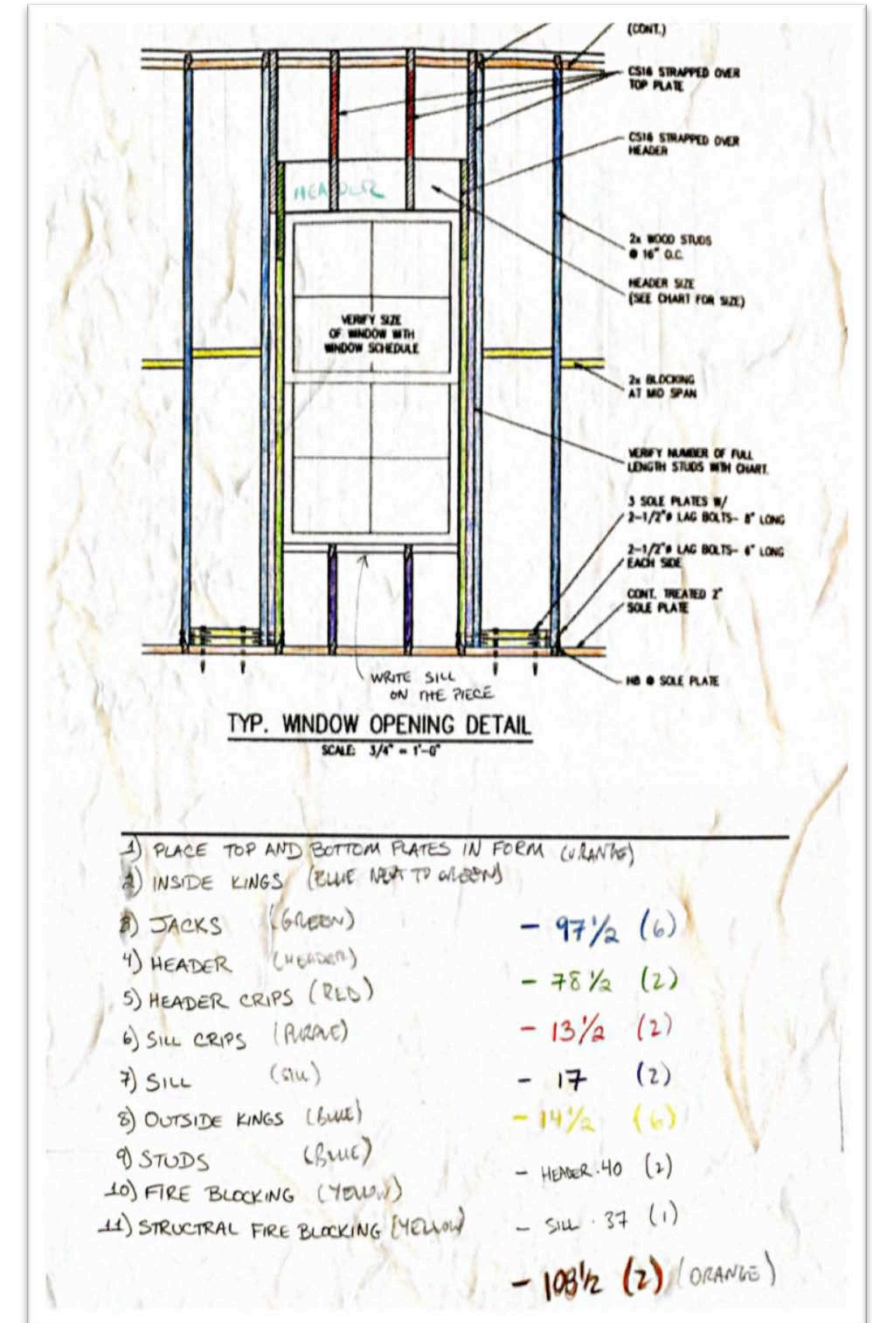 (CONT.)
CS16 STRAPPED OVER
TOP PLATE
CS16 STRAPPED OVER
HEADER
HEADER
2x WOOD STUDS
@ 16" O.C.
HEADER SIZE
(SEE CHART FOR SIZE)
VERIFY SIZE
OF WINDOW WITH
WINDOW SCHEDULE
2x BLOCKING
AT MID SPAN
VERIFY NUMBER OF FULL
LENGTH STUDS WITH CHART.
3 SOLE PLATES W/
2-1/2"ø LAG BOLTS- 8" LONG
2-1/2"ø LAG BOLTS- 6" LONG
EACH SIDE
CONT. TREATED 2"
SOLE PLATE
H8 @ SOLE PLATE
WRITE SILL
ON THE PIECE
TYP. WINDOW OPENING DETAIL
SCALE: 3/4" = 1'-0"
1) PLACE TOP AND BOTTOM PLATES IN FORM (ORANGE)
2) INSIDE KINGS (BLUE NEXT TO GREEN)
3) JACKS (GREEN) - 97 1/2 (6)
4) HEADER (HEADER) - 78 1/2 (2)
5) HEADER CRIPS (RED) - 13 1/2 (2)
6) SILL CRIPS (PURPLE) - 17 (2)
7) SILL (SILL) - 14 1/2 (6)
8) OUTSIDE KINGS (BLUE) - HEADER · 40 (2)
9) STUDS (BLUE) - SILL · 37 (1)
10) FIRE BLOCKING (YELLOW)
11) STRUCTRAL FIRE BLOCKING (YELLOW)
- 108 1/2 (2) (ORANGE)